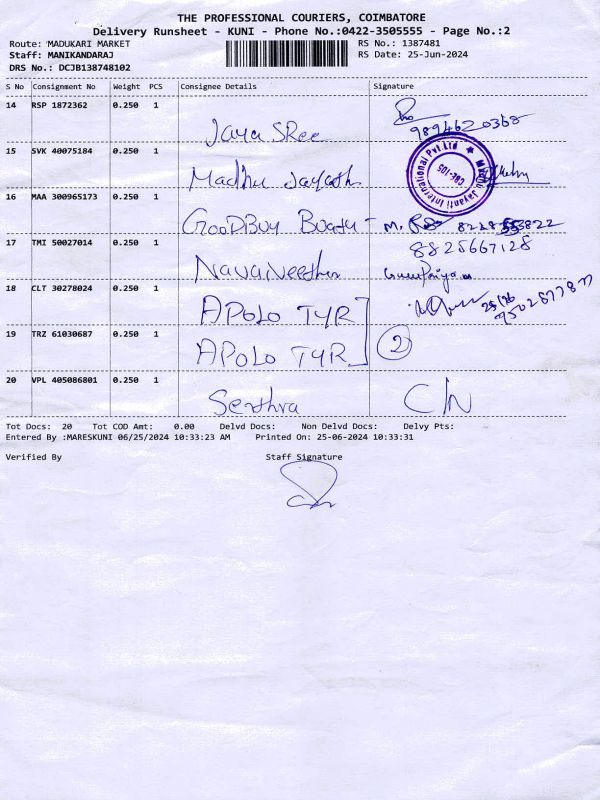 THE PROFESSIONAL COURIERS, COIMBATORE
Delivery Runsheet - KUNI - Phone No.:0422-3505555 - Page No.:2
Route: MADUKARI MARKET
RS No.: 1387481
Staff: MANIKANDARAJ
RS Date: 25-Jun-2024
DRS No.: DCJB138748102
S No Consignment No Weight PCS Consignee Details Signature
14 RSP 1872362 0.250 1
Jaya SRee
9894620368
15 SVK 40075184 0.250 1
Madhu Jayath
Madhu Jayanti International Pvt.Ltd ★
CBE-105
16 MAA 300965173 0.250 1
GOODBUY
M.
17 TMI 50027014 0.250 1
8825667128
Navaneetha
18 CLT 30278024 0.250 1
APOLO TYR
19 TRZ 61030687 0.250 1
APOLO TYR
2
20 VPL 405086801 0.250 1
C/N
Tot Docs: 20 Tot COD Amt: 0.00 Delvd Docs: Non Delvd Docs: Delvy Pts:
Entered By :MARESKUNI 06/25/2024 10:33:23 AM Printed On: 25-06-2024 10:33:31
Verified By Staff Signature